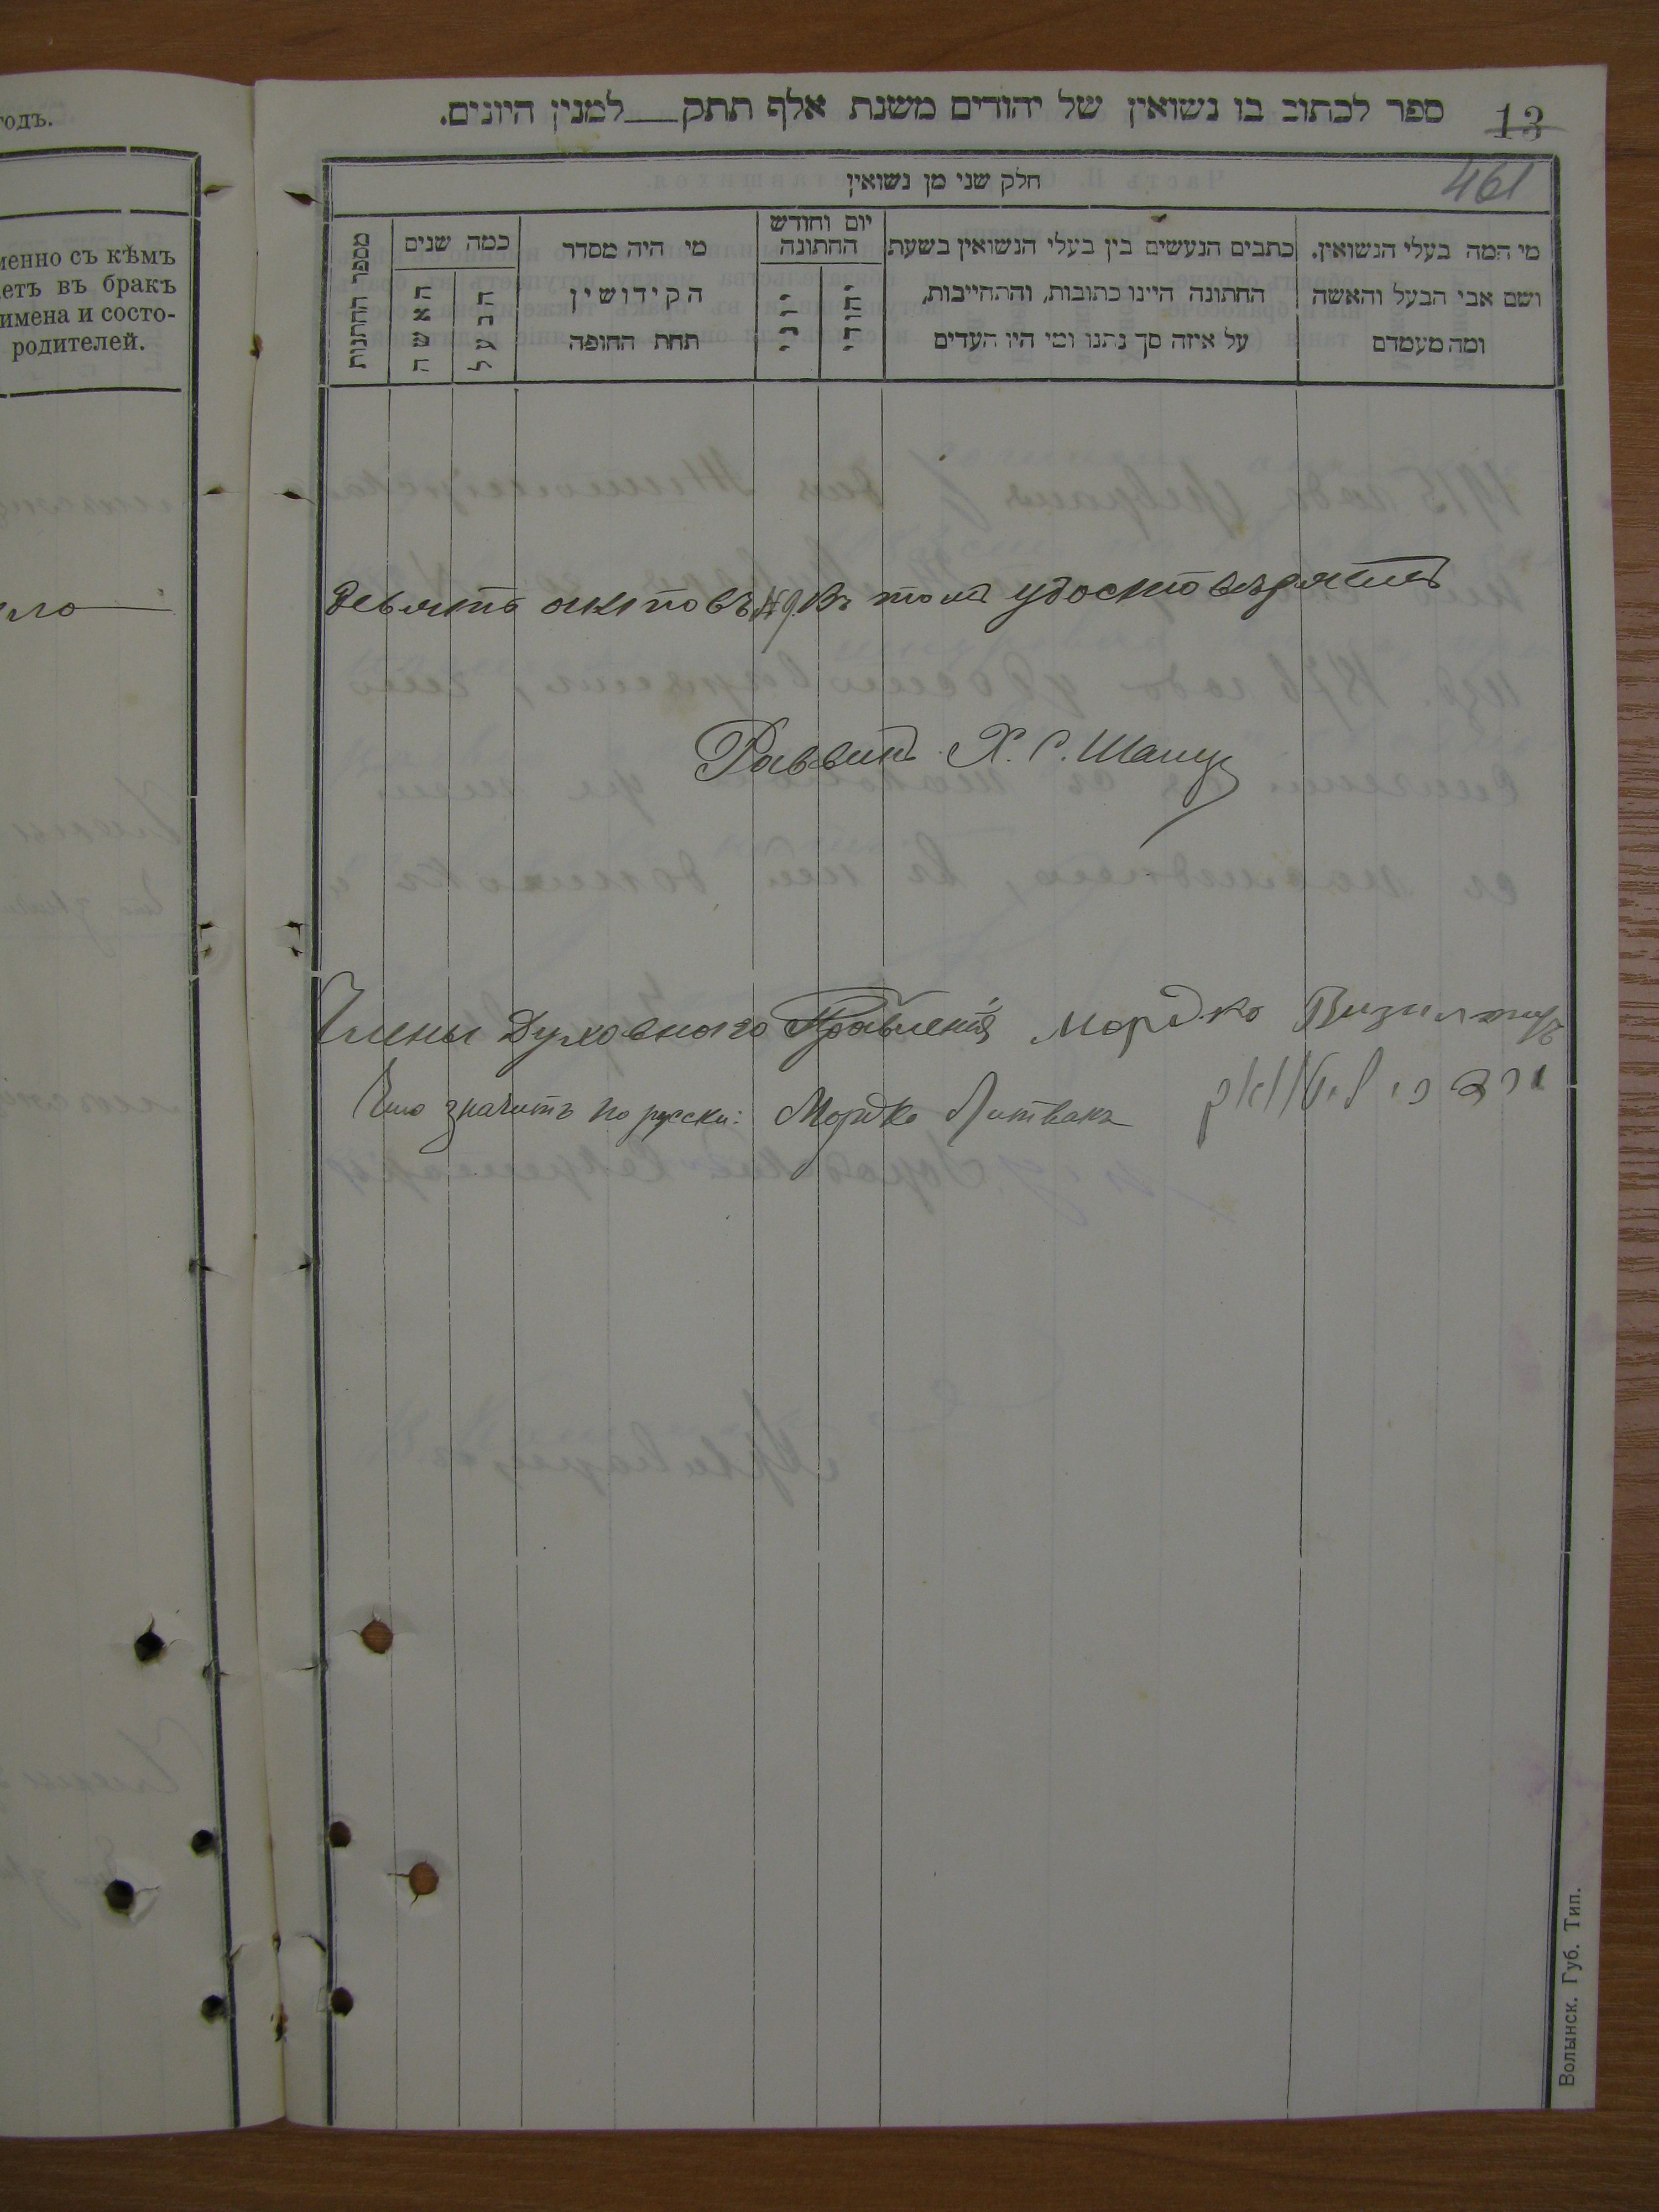 годъ.
менно съ кѣмъ
етъ въ бракъ
имена и состо-
родителей.
ло
13
ספר לכתוב בו נשואין של יהודים משנת אלף תתק למנין היונים.
461
חלק שני מן נשואין
מי המה בעלי הנשואין,
ושם אבי הבעל והאשה
ומה מעמדם
כתבים הנעשים בין בעלי הנשואין בשעת
החתונה היינו כתובות, והתחייבות,
על איזה סך נתנו ומי היו העדים
יום וחודש
החתונה
יהודי
יוני
מי היה מסדר
הקידושין
תחת החופה
כמה שנים
הבעל
האשה
מספר החתנות
девять актовъ №9. Въ томъ удостовѣряемъ
Раввинъ Х. С. Шапир
Члены Духовнаго Правленія Мордко Визилтиръ
Что значитъ по русски: Мордко Литвакъ
Волынск. Губ. Тип.